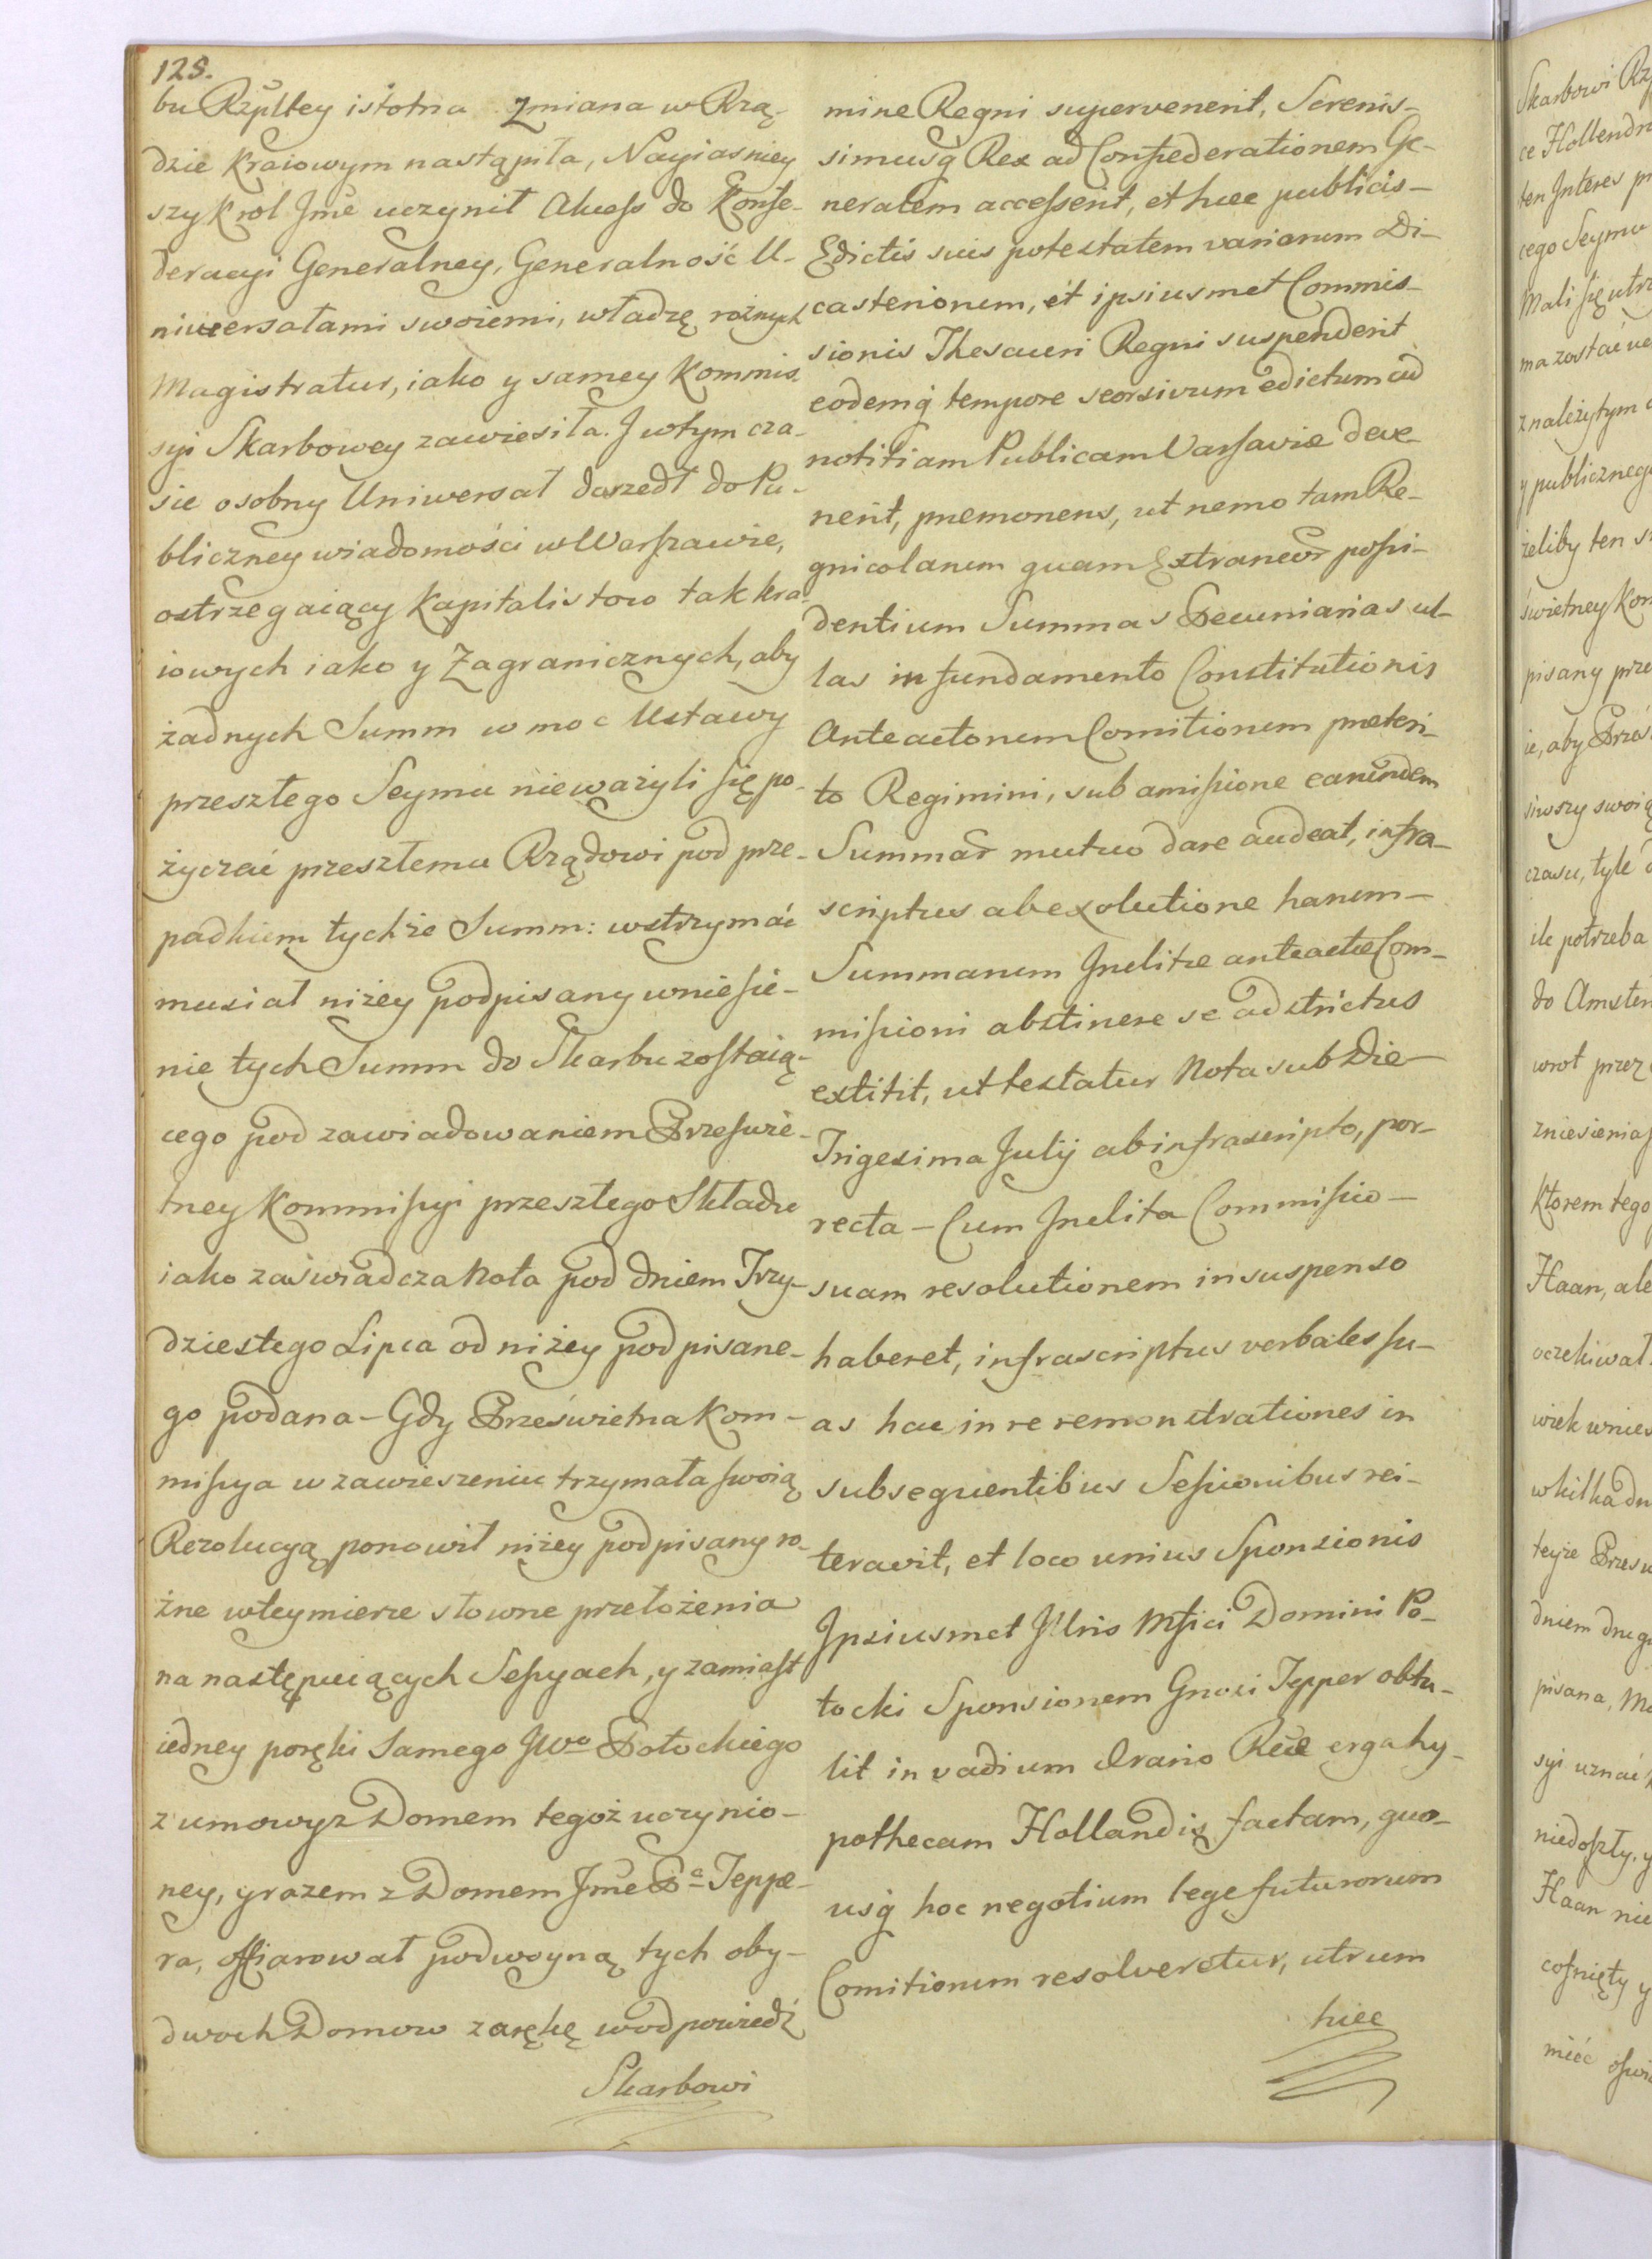 128.
bu Rzpltey istotna Zmiana w Rzą-
dzie kraiowym nastąpiła, Nayiasniey
szy krol Jmć uczynił Akcess do Konfe-
deracyi Generalney, Generalność U-
niwersałami swoiemi, władzę rożnych
Magistratur, iako y samey Kommis-
syi Skarbowey zawiesiła. J wtym cza-
sie osobny Uniwersał doszedł do Pu-
bliczney wiadomości w Warszawie,
ostrzegaiący Kapitalistow tak kra-
iowych iako y Zagranicznych, aby
żadnych Summ w moc Ustawy
przeszłego Seymu nieważyli się po-
życzać przeszłemu Rządowi pod prze-
padkiem tychże Summ: wstrzymać
musiał niżey podpisany wniesie-
nie tych Summ do Skarbu zostaią-
cego pod zawiadowaniem Przeswie-
tney Kommissyi przeszłego Składu
iako zaświadcza Nota pod dniem Trzy-
dziestego Lipca od niżey podpisane-
go podana - Gdy Prześwietna Kom-
missya w zawieszeniu trzymała swoią
Rezolucyą ponowił niżey podpisany ro-
żne wteymierze słowne przełożenia
na następuiących Sessyach, y zamiast
iedney poręki Samego JWo Potockiego
z umowy z Domem tegoż uczynio-
ney, y razem z Domem Jmć Pa Teppe-
ra, offiarował podwoyną tych oby-
dwoch Domow zarękę w odpowiedź
Skarbowi
mine Regni supervenerit, Serenis-
simusq Rex ad Confederationem Ge-
neralem accesserit, et haec publicis-
Edictis suis potestatem variarum Di-
casteriorum, et ipsiusmet Commis-
sionis Thesauri Regni suspenderit
eodemq tempore seorsivum edictum ad
notitiam Publicam Varsaviæ deve-
nerit, præmonens, ut nemo tam Re-
gnicolarum quam Extraneor possi-
dentium Summas Pecuniarias ul-
las in fundamento Constitutionis
Anteactorum Comitiorum præteri-
to Regimini, sub amissione earundem
Summar mutuo dare audeat, infra-
scriptus ab exolutione harum-
Summarum Jnclitæ anteactæ Com-
missioni abstinere se adstrictus
extitit, ut testatur Nota sub Die-
Trigesima Julij ab infrascripto, por-
recta - Cum Jnclita Commissio-
suam resolutionem in suspenso
haberet, infrascriptus verbales su-
as hac in re remonstrationes in
subsequentibus Sessionibus rei-
teravit, et loco unius Sponsionis
Jpsiusmet Jllris Mfici Domini Po-
tocki Sponsionem Gnosi Tepper obtu-
lit in vadium Ærario erga hy-
pothecam Hollandię factam, quo-
usq hoc negotium lege futurorum
Comitiorum resolveretur, utrum
haec
Skarbowi
ce Hollendr
ten Jnteres
cego Seymu
ma zostać
z należytym
y publiczneg
żeliby ten
świetney Kom
pisany prze
ie, aby Prześ
czasu, tyle
ile potrzeba
do Amster
wrot przez
zniesienia
ktorem tego
Haan, ale
oczekiwał
wkilka dn
teyże Przes
dniem drug
pisana,
syi uznać
niedoszły, y
Haan nie
cofnięty y
mieć